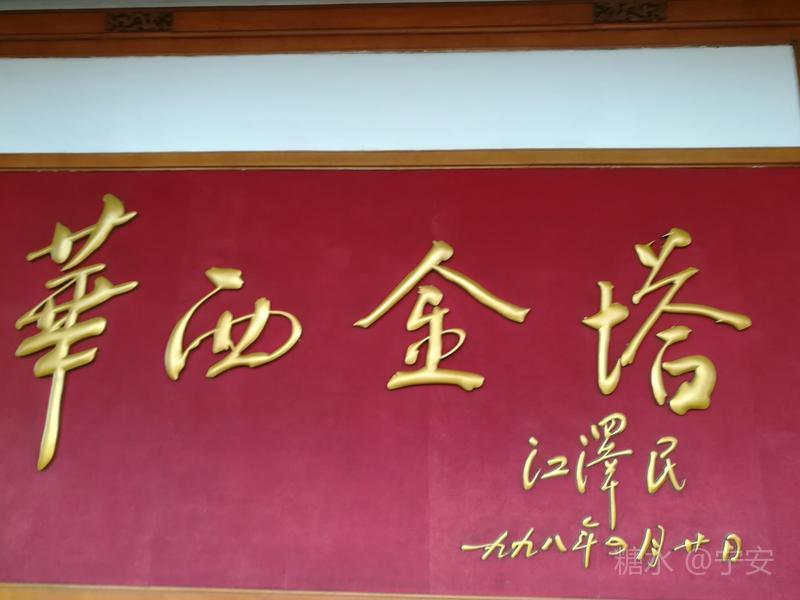 華西金塔
江澤民
一九九八年二月廿日
糖水 @宁安